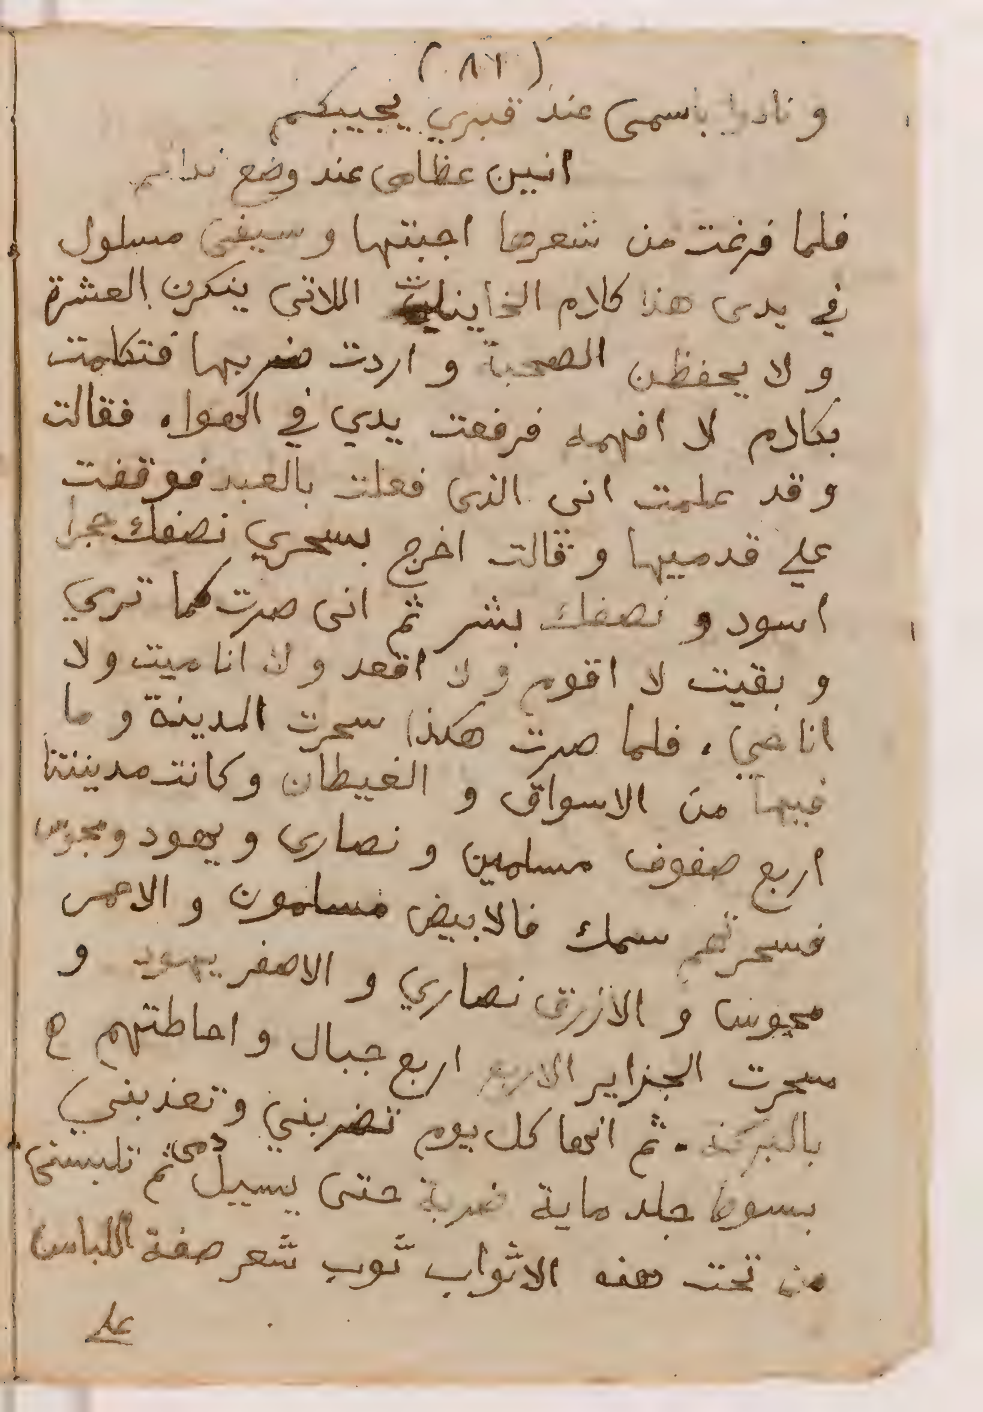 (٨٦)
و نادوا باسمى عند قبري يجيبكم
انين عظامى عند وضع نداكم
فلما فرغت من شعرها اجبتها و سيفى مسلول
في يدى هذا كلام الخاينات اللاتى ينكرن العشرة
و لا يحفظن الصحبة و اردت ضربها فتكلمت
بكلام لا افهمه فرفعت يدي في الهواء فقالت
وقد علمت انى الذى فعلت بالعبد فوقفت
علي قدميها و قالت اخرج بسحري نصفك حجرا
اسود و نصفك بشر ثم انى صرت كما تري
و بقيت لا اقوم و لا اقعد و لا انا ميت ولا
انا حي . فلما صرت هكذا سحرت المدينة و ما
فيها من الاسواق و الغيطان و كانت مدينتنا
اربع صفوف مسلمين و نصارى و يهود و مجوس
فسحرتهم سمك فالابيض مسلمون و الاحمر
مجوس و الازرق نصاري و الاصفر يهود و
سحرت الجزاير الاربع اربع جبال و احاطتهم
بالبركة . ثم انها كل يوم تضربني و تعذبني
بسوط جلد ماية ضربة حتى يسيل دمى ثم تلبسنى
من تحت هذه الاثواب ثوب شعر صفة اللباس
على